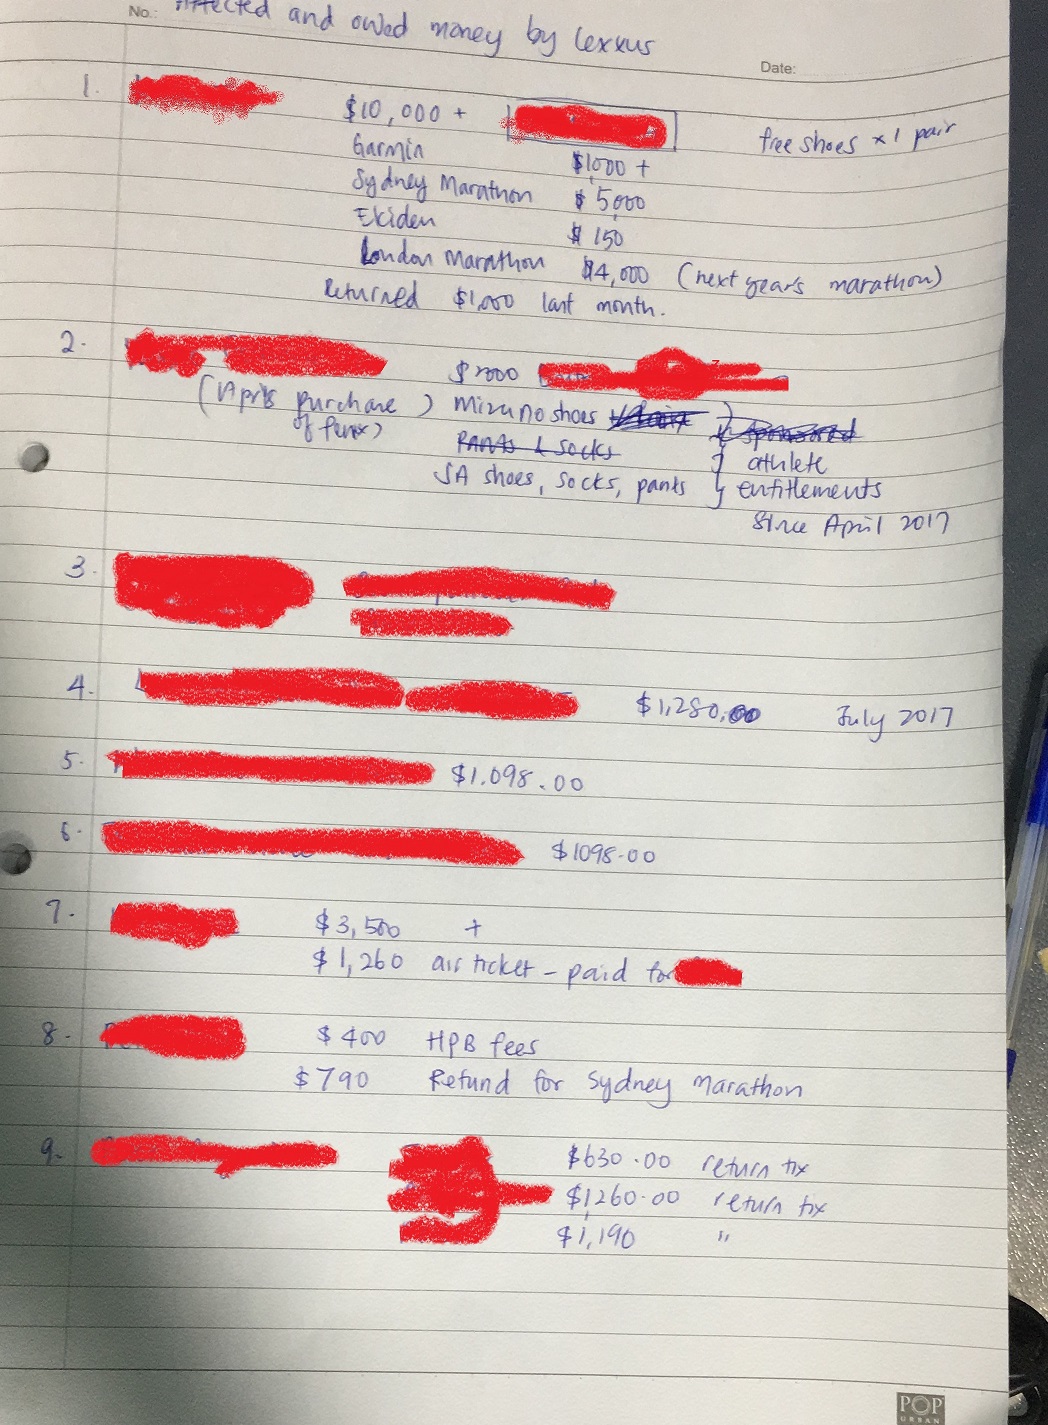 No.: Affected and owed money by Lexxus
Date:
1.
$10,000 +
free shoes x 1 pair
Garmin $1000 +
Sydney Marathon $5,000
Ekiden $150
London Marathon $4,000 (next year's marathon)
Returned $1,000 last month.
2. $2000
(April's purchase of fenix) Mizuno shoes sponsored
pants & socks athlete
SA shoes, socks, pants entitlements
since April 2017
3.
4. $1,280.00 July 2017
5. $1,098.00
6. $1098.00
7. $3,500 +
$1,260 air ticket - paid for
8. $400 HPB fees
$790 Refund for Sydney Marathon
9. $630.00 return tix
$1260.00 return tix
$1,190 "
POP
URBAN